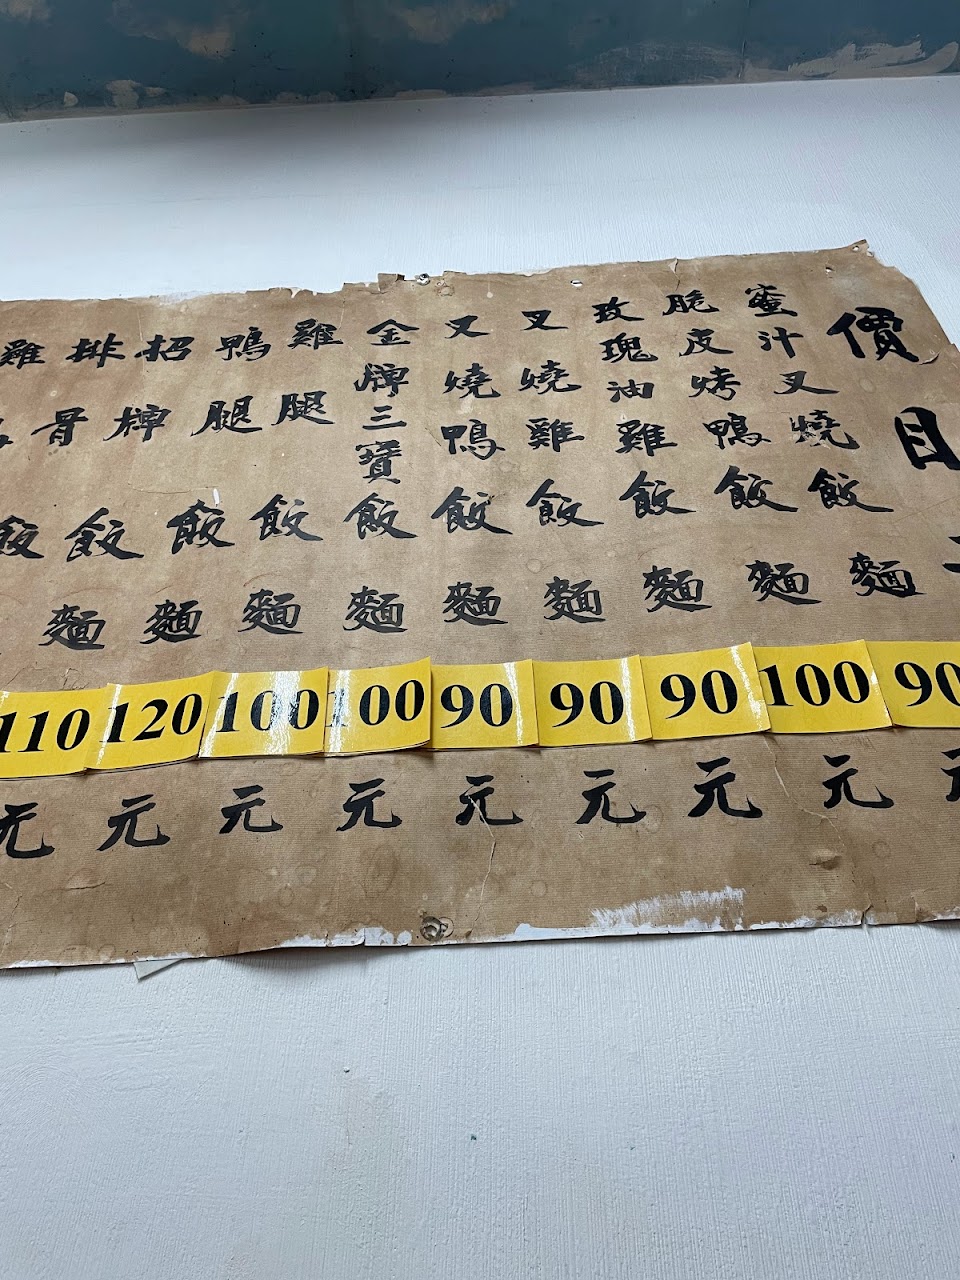 價目
蜜汁叉燒飯麵90元
脆皮烤鴨飯麵100元
玫瑰油雞飯麵90元
叉燒雞飯麵90元
叉燒鴨飯麵90元
金牌三寶飯麵100元
雞腿飯麵100元
鴨腿飯麵120元
招牌飯麵110元
排骨飯
雞飯